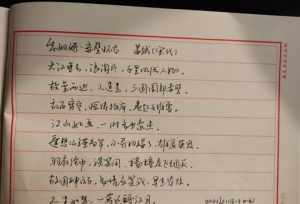 念奴娇·赤壁怀古 苏轼(宋代)
大江东去，浪淘尽，千古风流人物。
故垒西边，人道是，三国周郎赤壁。
乱石穿空，惊涛拍岸，卷起千堆雪。
江山如画，一时多少豪杰。
遥想公瑾当年，小乔初嫁了，雄姿英发。
羽扇纶巾，谈笑间，樯橹灰飞烟灭。
故国神游，多情应笑我，早生华发。
人生如梦，一尊还酹江月